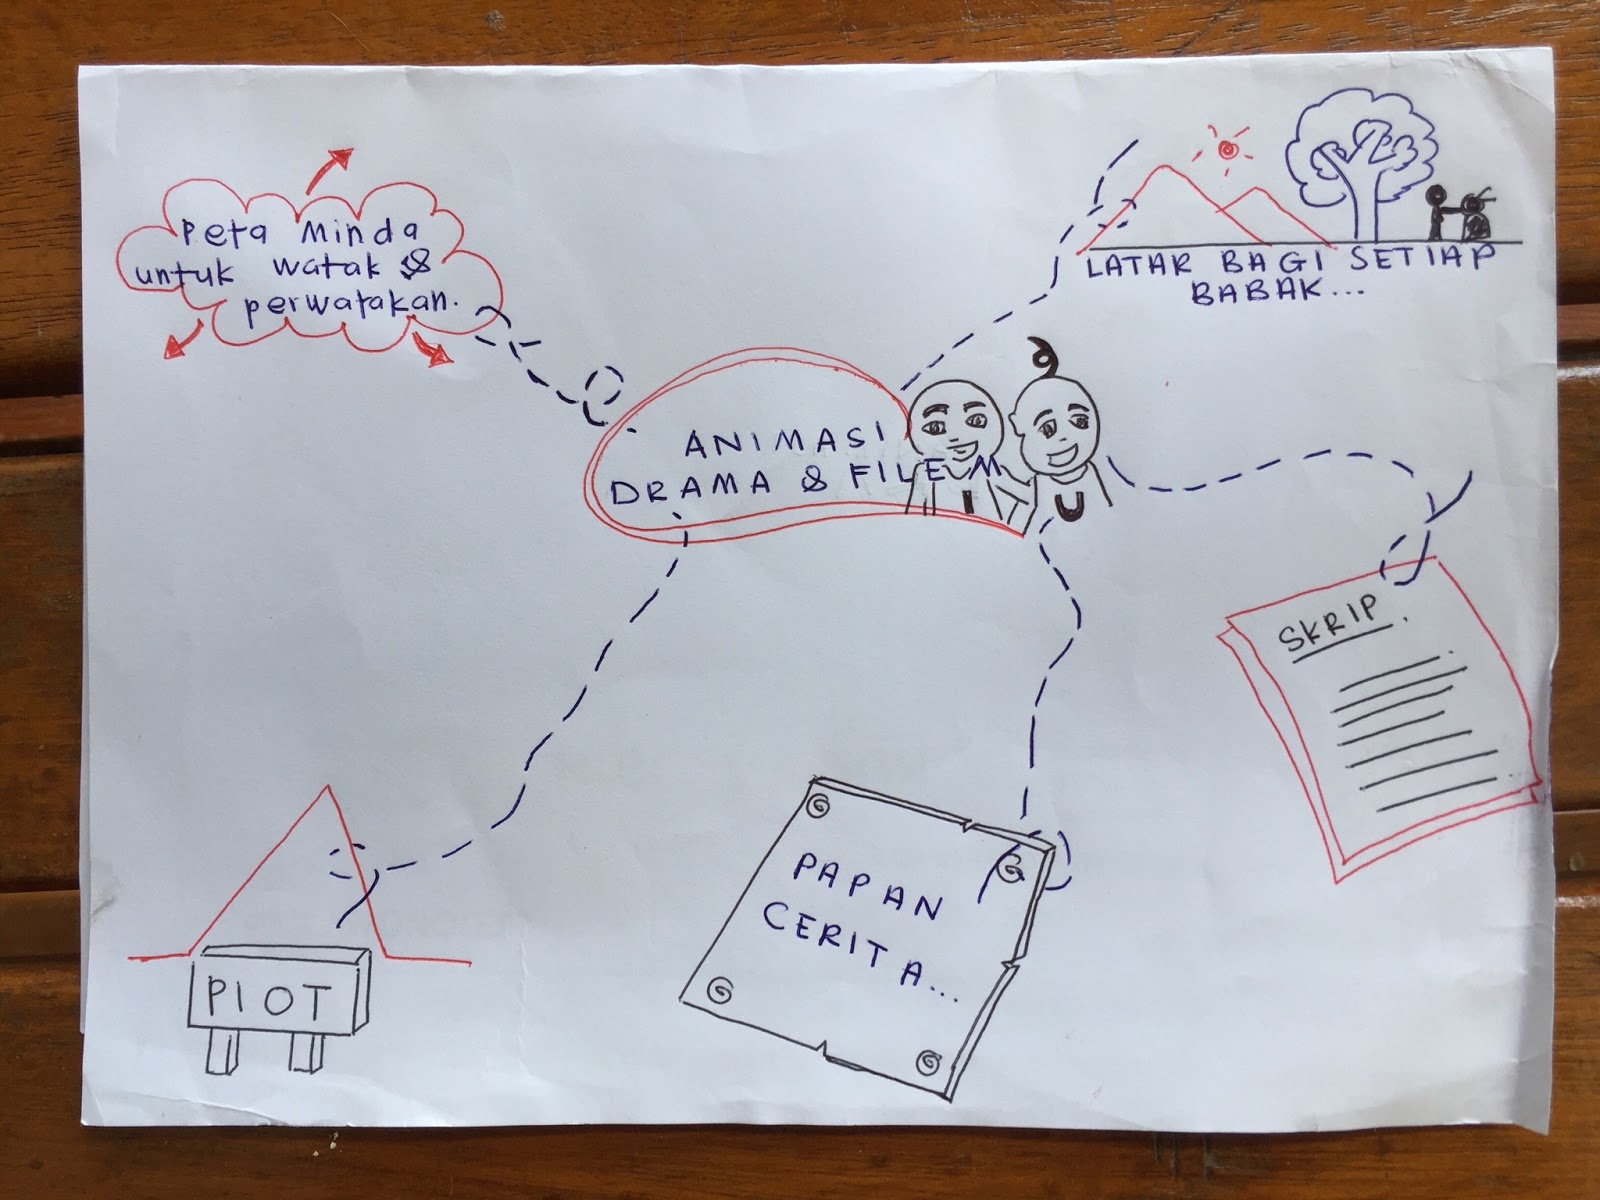 Peta Minda
untuk watak &
perwatakan.
LATAR BAGI SETIAP
BABAK...
ANIMASI
DRAMA & FILEM
I
U
SKRIP.
PLOT
PAPAN
CERITA...